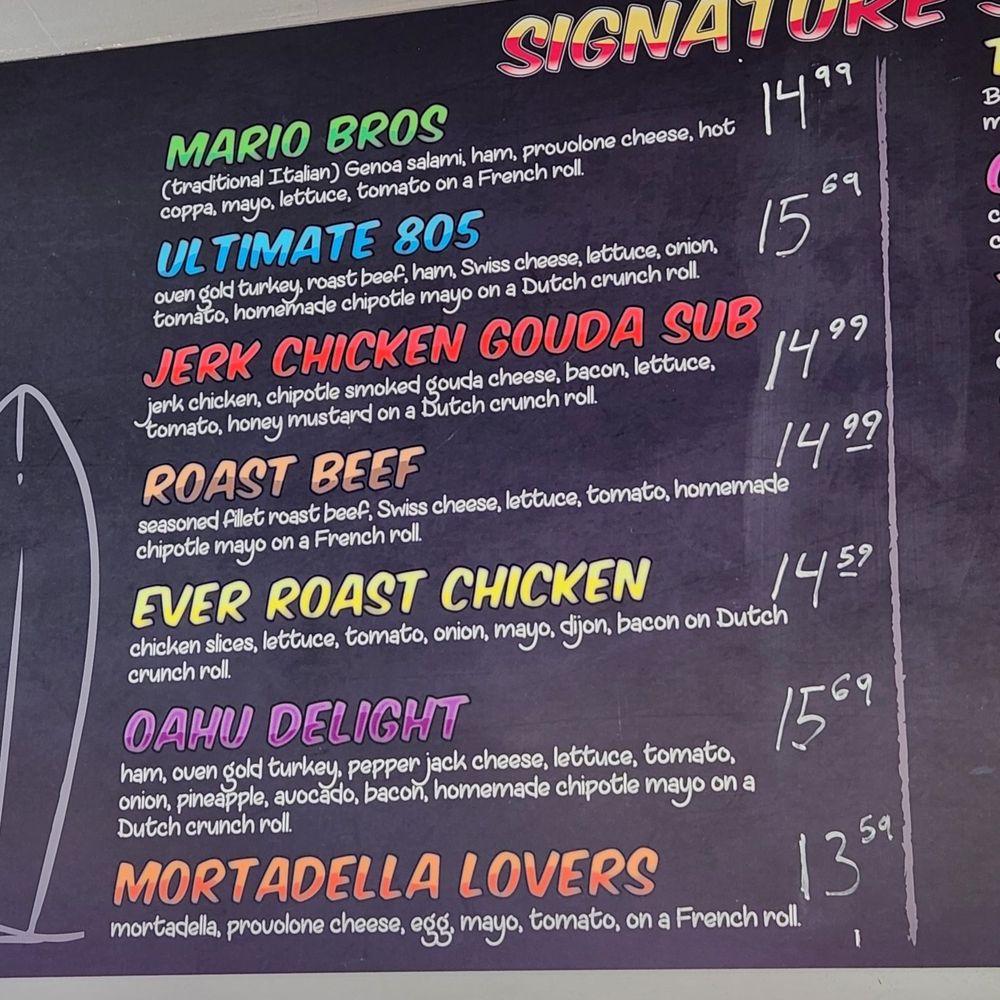 SIGNATURE
MARIO BROS 14.99
(traditional Italian) Genoa salami, ham, provolone cheese, hot
coppa, mayo, lettuce, tomato on a French roll.
ULTIMATE 805 15.69
oven gold turkey, roast beef, ham, Swiss cheese, lettuce, onion,
tomato, homemade chipotle mayo on a Dutch crunch roll.
JERK CHICKEN GOUDA SUB 14.99
jerk chicken, chipotle smoked gouda cheese, bacon, lettuce,
tomato, honey mustard on a Dutch crunch roll.
ROAST BEEF 14.99
seasoned fillet roast beef, Swiss cheese, lettuce, tomato, homemade
chipotle mayo on a French roll.
EVER ROAST CHICKEN 14.59
chicken slices, lettuce, tomato, onion, mayo, dijon, bacon on Dutch
crunch roll.
OAHU DELIGHT 15.69
ham, oven gold turkey, pepper jack cheese, lettuce, tomato,
onion, pineapple, avocado, bacon, homemade chipotle mayo on a
Dutch crunch roll.
MORTADELLA LOVERS 13.59
mortadella, provolone cheese, egg, mayo, tomato, on a French roll.